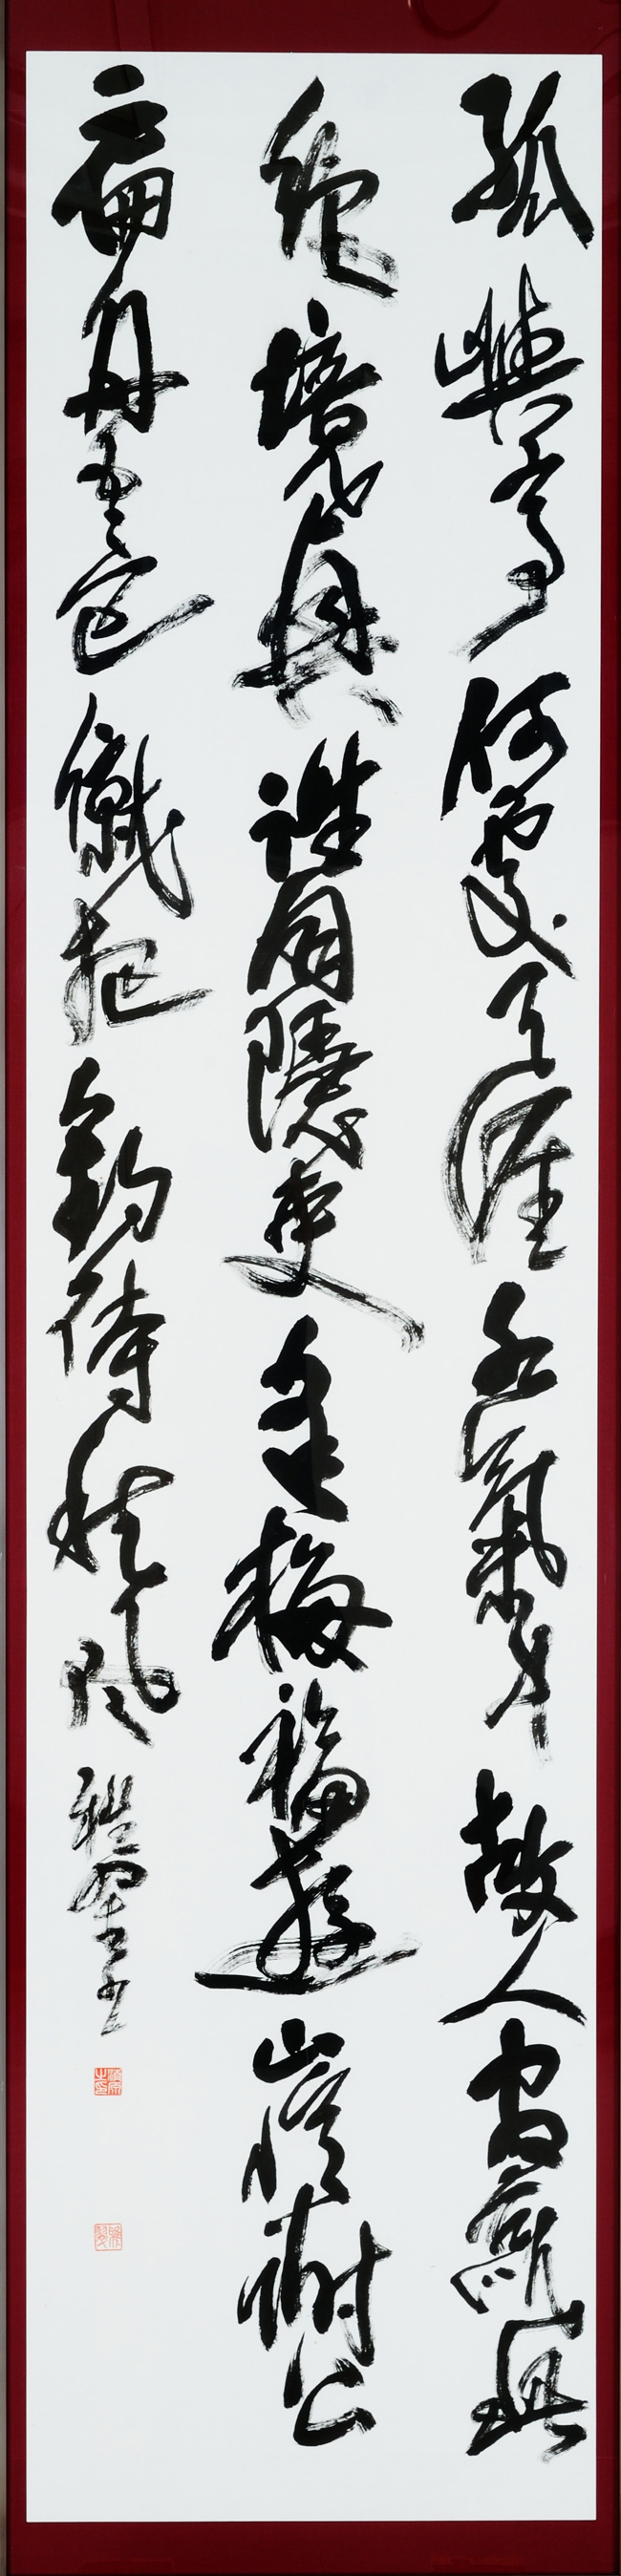 孤嶼亭何處天涯水氣中故人官就此
絕境與誰同隱吏逢梅福遊山憶謝公
扁舟吾已僦把釣待秋風